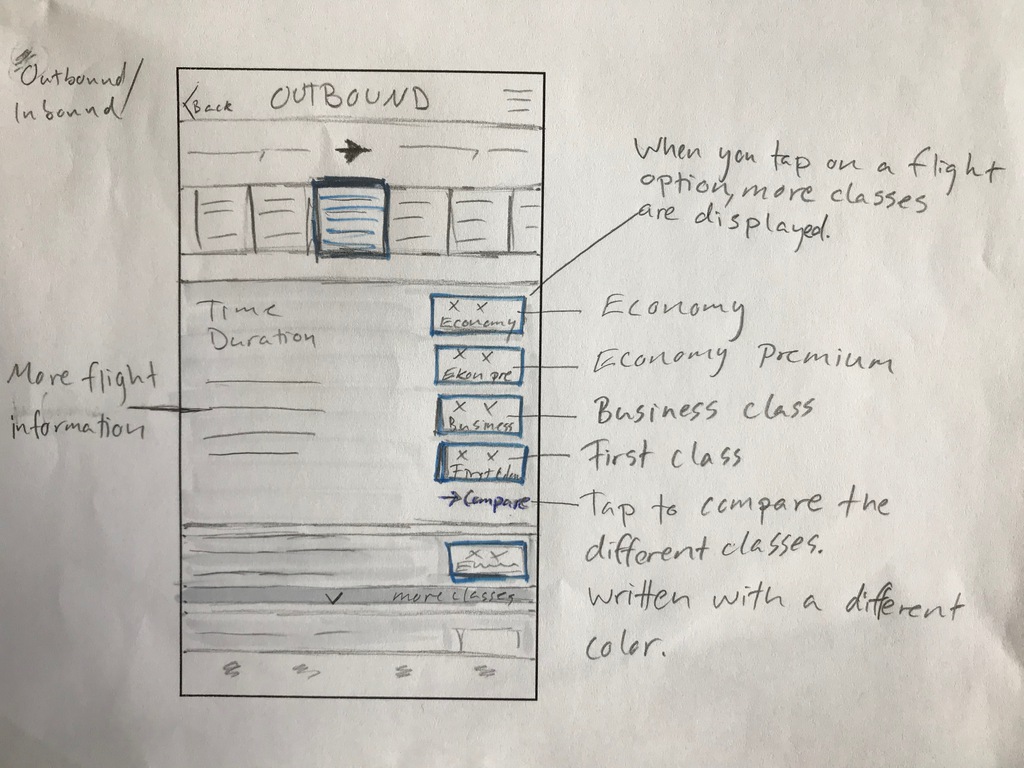 Outbound/
Inbound
<Back
OUTBOUND
When you tap on a flight
option, more classes
are displayed.
Time
Duration
More flight
information
x x
Economy
x x
Ekon pre
x x
Business
x x
First
→Compare
Economy
Economy Premium
Business class
First class
Tap to compare the
different classes.
written with a different
color.
x x
more classes